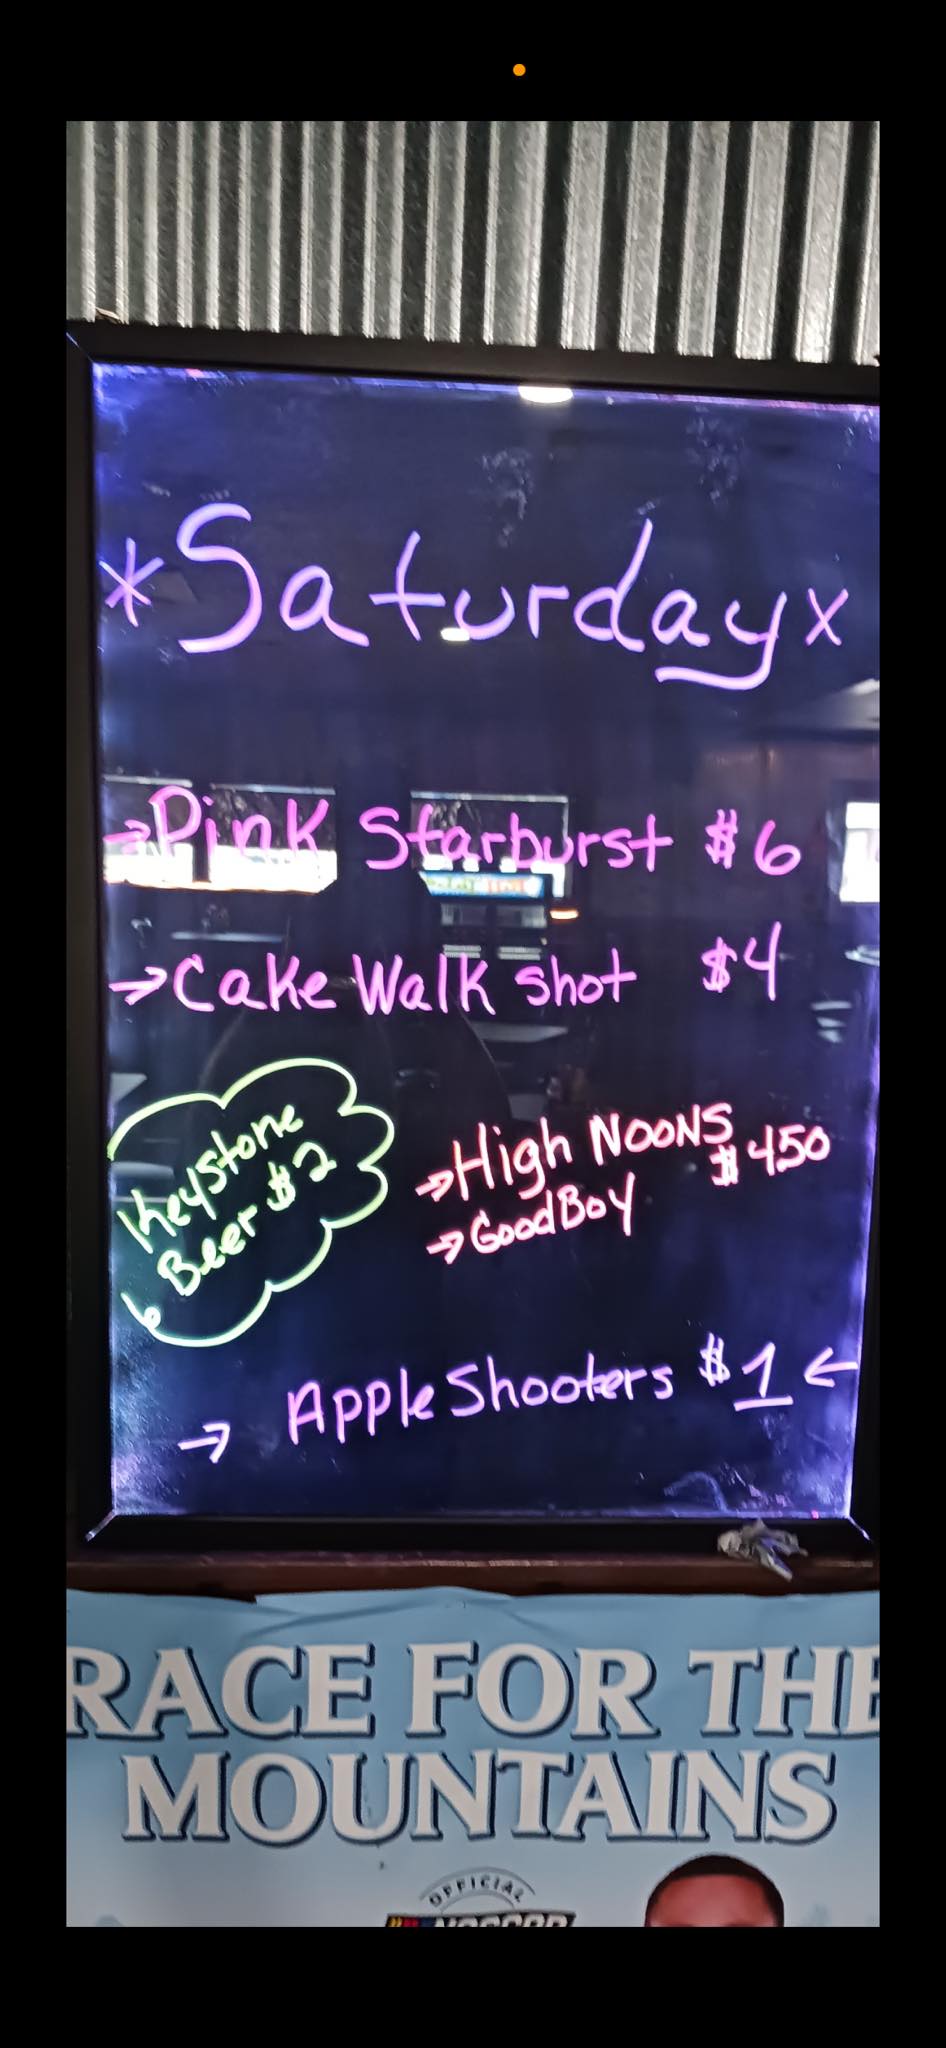 *Saturday x
→Pink Starburst $6
→Cake Walk shot $4
Keystone
Beer $2
→High NOONS $450
→GoodBoy
→ Apple Shooters $1 ←
RACE FOR THE
MOUNTAINS
OFFICIAL
NASCAR